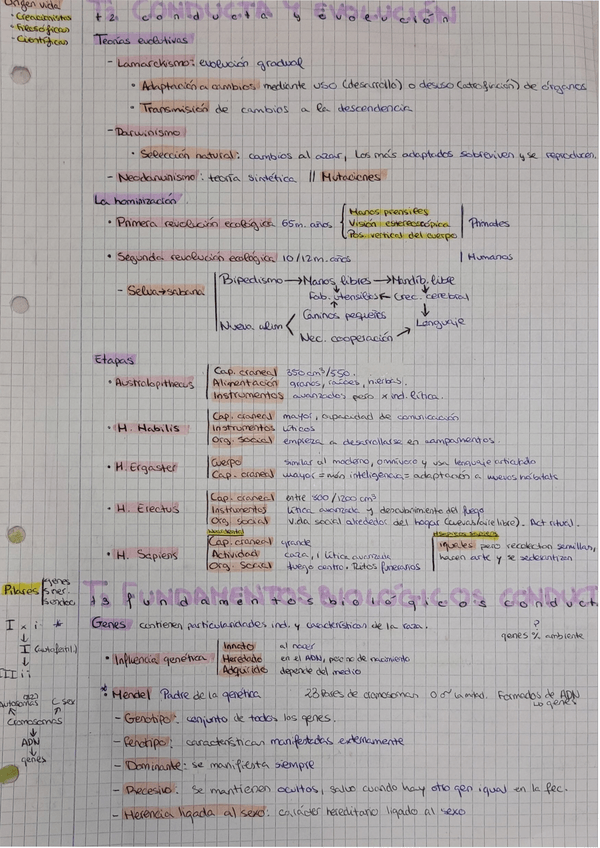 Origen vida
• Creacionistas
• Filosóficas
• Científicas
T2 CONDUCTA Y EVOLUCIÓN
Teorías evolutivas
- Lamarckismo: evolución gradual
• Adaptación a cambios mediante uso (desarrollo) o desuso (atrofia) de órganos
• Transmisión de cambios a la descendencia
- Darwinismo
• Selección natural: cambios al azar, los más adaptados sobreviven y se reproducen.
- Neodarwinismo: teoría sintética || Mutaciones
La hominización
• Primera revolución ecológica 65m. años
Manos prensiles
Visión estereoscópica
Pos. vertical del cuerpo
Primates
• Segunda revolución ecológica 10/12m. años | Humanos
- Selva→sabana
Bipedismo → Manos libres → Mandíb. libre
Fab. utensilios ← Crec. cerebral
Nueva alim
Caninos pequeños
Nec. cooperación
Lenguaje
Etapas
• Australopithecus
Cap. craneal 350cm³/550.
Alimentación granos, raíces, hierbas.
Instrumentos avanzados pero x ind. lítica.
• H. Habilis
Cap. craneal mayor, capacidad de comunicación
Instrumentos líticos
Org. social empieza a desarrollarse en campamentos.
• H. Ergaster
Cuerpo similar al moderno, omnívoro y usa lenguaje articulado
Cap. craneal mayor = más inteligencia = adaptación a nuevos hábitats
• H. Erectus
Cap. craneal entre 800/1200cm³
Instrumentos lítica avanzada y descubrimiento del fuego
Org. social vida social alrededor del hogar (cuevas/aire libre). Act ritual.
• H. Sapiens
Neandertal
Cap. craneal grande
Actividad caza, i lítica avanzada
Org. Social fuego centro. Ritos funerarios
iguales pero recolectan semillas,
hacen arte y se sedentarizan
Pilares
genes
s ner.
T3 FUNDAMENTOS BIOLÓGICOS CONDUCT
Genes contienen particularidades ind. y características de la raza.
?
genes % ambiente
I x i *
I i
II i i
• Influencia genética
Innato al nacer
Heredado en el ADN, pero no de nacimiento
Adquirido depende del medio
* Mendel Padre de la genética
23 Pares de cromosomas
Formados de ADN
autosomas
C sex
Cromosomas
ADN
genes
- Genotipo: conjunto de todos los genes.
- Fenotipo: características manifestadas externamente
- Dominante: se manifiesta siempre
- Recesivo: se mantienen ocultos, salvo cuando hay otro gen igual en la fec.
- Herencia ligada al sexo: carácter hereditario ligado al sexo